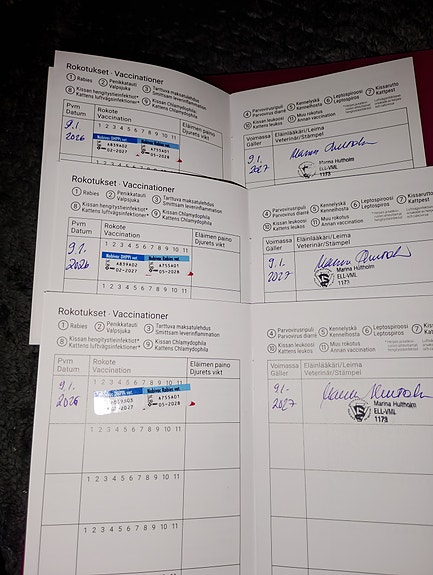 Rokotukset · Vaccinationer
① Rabies ② Penikkatauti Valpsjuka ③ Tarttuva maksatulehdus Smittsam leverinflammation
④ Parvovirusripuli Parvovirus diarré ⑤ Kennelyskä Kennelhosta ⑥ Leptospiroosi Leptospiros ⑦ Kissarutto Kattpest
⑧ Kissan hengitystieinfektiot* Kattens luftvägsinfektioner* ⑨ Kissan Chlamydophila Kattens Chlamydophila
⑩ Kissan leukoosi Kattens leukos ⑪ Muu rokotus Annan vaccination
Pvm Datum Rokote Vaccination Eläimen paino Djurets vikt
Voimassa Gäller Eläinlääkäri/Leima Veterinär/Stämpel
1 2 3 4 5 6 7 8 9 10 11
9.1. 2026
Nobivac DHPPi vet. Nobivac Rabies vet.
A839A02 A755A01
02-2027 05-2028
9.1. 2027
Marina Hultholm
ELL-VML
1173
Rokotukset · Vaccinationer
① Rabies ② Penikkatauti Valpsjuka ③ Tarttuva maksatulehdus Smittsam leverinflammation
④ Parvovirusripuli Parvovirus diarré ⑤ Kennelyskä Kennelhosta ⑥ Leptospiroosi Leptospiros ⑦ Kissarutto Kattpest
⑧ Kissan hengitystieinfektiot* Kattens luftvägsinfektioner* ⑨ Kissan Chlamydophila Kattens Chlamydophila
⑩ Kissan leukoosi Kattens leukos ⑪ Muu rokotus Annan vaccination
Pvm Datum Rokote Vaccination Eläimen paino Djurets vikt
Voimassa Gäller Eläinlääkäri/Leima Veterinär/Stämpel
1 2 3 4 5 6 7 8 9 10 11
9.1. 2026
Nobivac DHPPi vet. Nobivac Rabies vet.
A839A02 A755A01
02-2027 05-2028
9.1. 2027
Marina Hultholm
ELL-VML
1173
Rokotukset · Vaccinationer
① Rabies ② Penikkatauti Valpsjuka ③ Tarttuva maksatulehdus Smittsam leverinflammation
④ Parvovirusripuli Parvovirus diarré ⑤ Kennelyskä Kennelhosta ⑥ Leptospiroosi Leptospiros ⑦ Kissarutto Kattpest
⑧ Kissan hengitystieinfektiot* Kattens luftvägsinfektioner* ⑨ Kissan Chlamydophila Kattens Chlamydophila
⑩ Kissan leukoosi Kattens leukos ⑪ Muu rokotus Annan vaccination
Pvm Datum Rokote Vaccination Eläimen paino Djurets vikt
Voimassa Gäller Eläinlääkäri/Leima Veterinär/Stämpel
1 2 3 4 5 6 7 8 9 10 11
9.1. 2026
DHPPi vet. Nobivac Rabies vet.
A755A01
2027 05-2028
9.1. 2027
Marina Hultholm
ELL-VML
1173
1 2 3 4 5 6 7 8 9 10 11
1 2 3 4 5 6 7 8 9 10 11
1 2 3 4 5 6 7 8 9 10 11